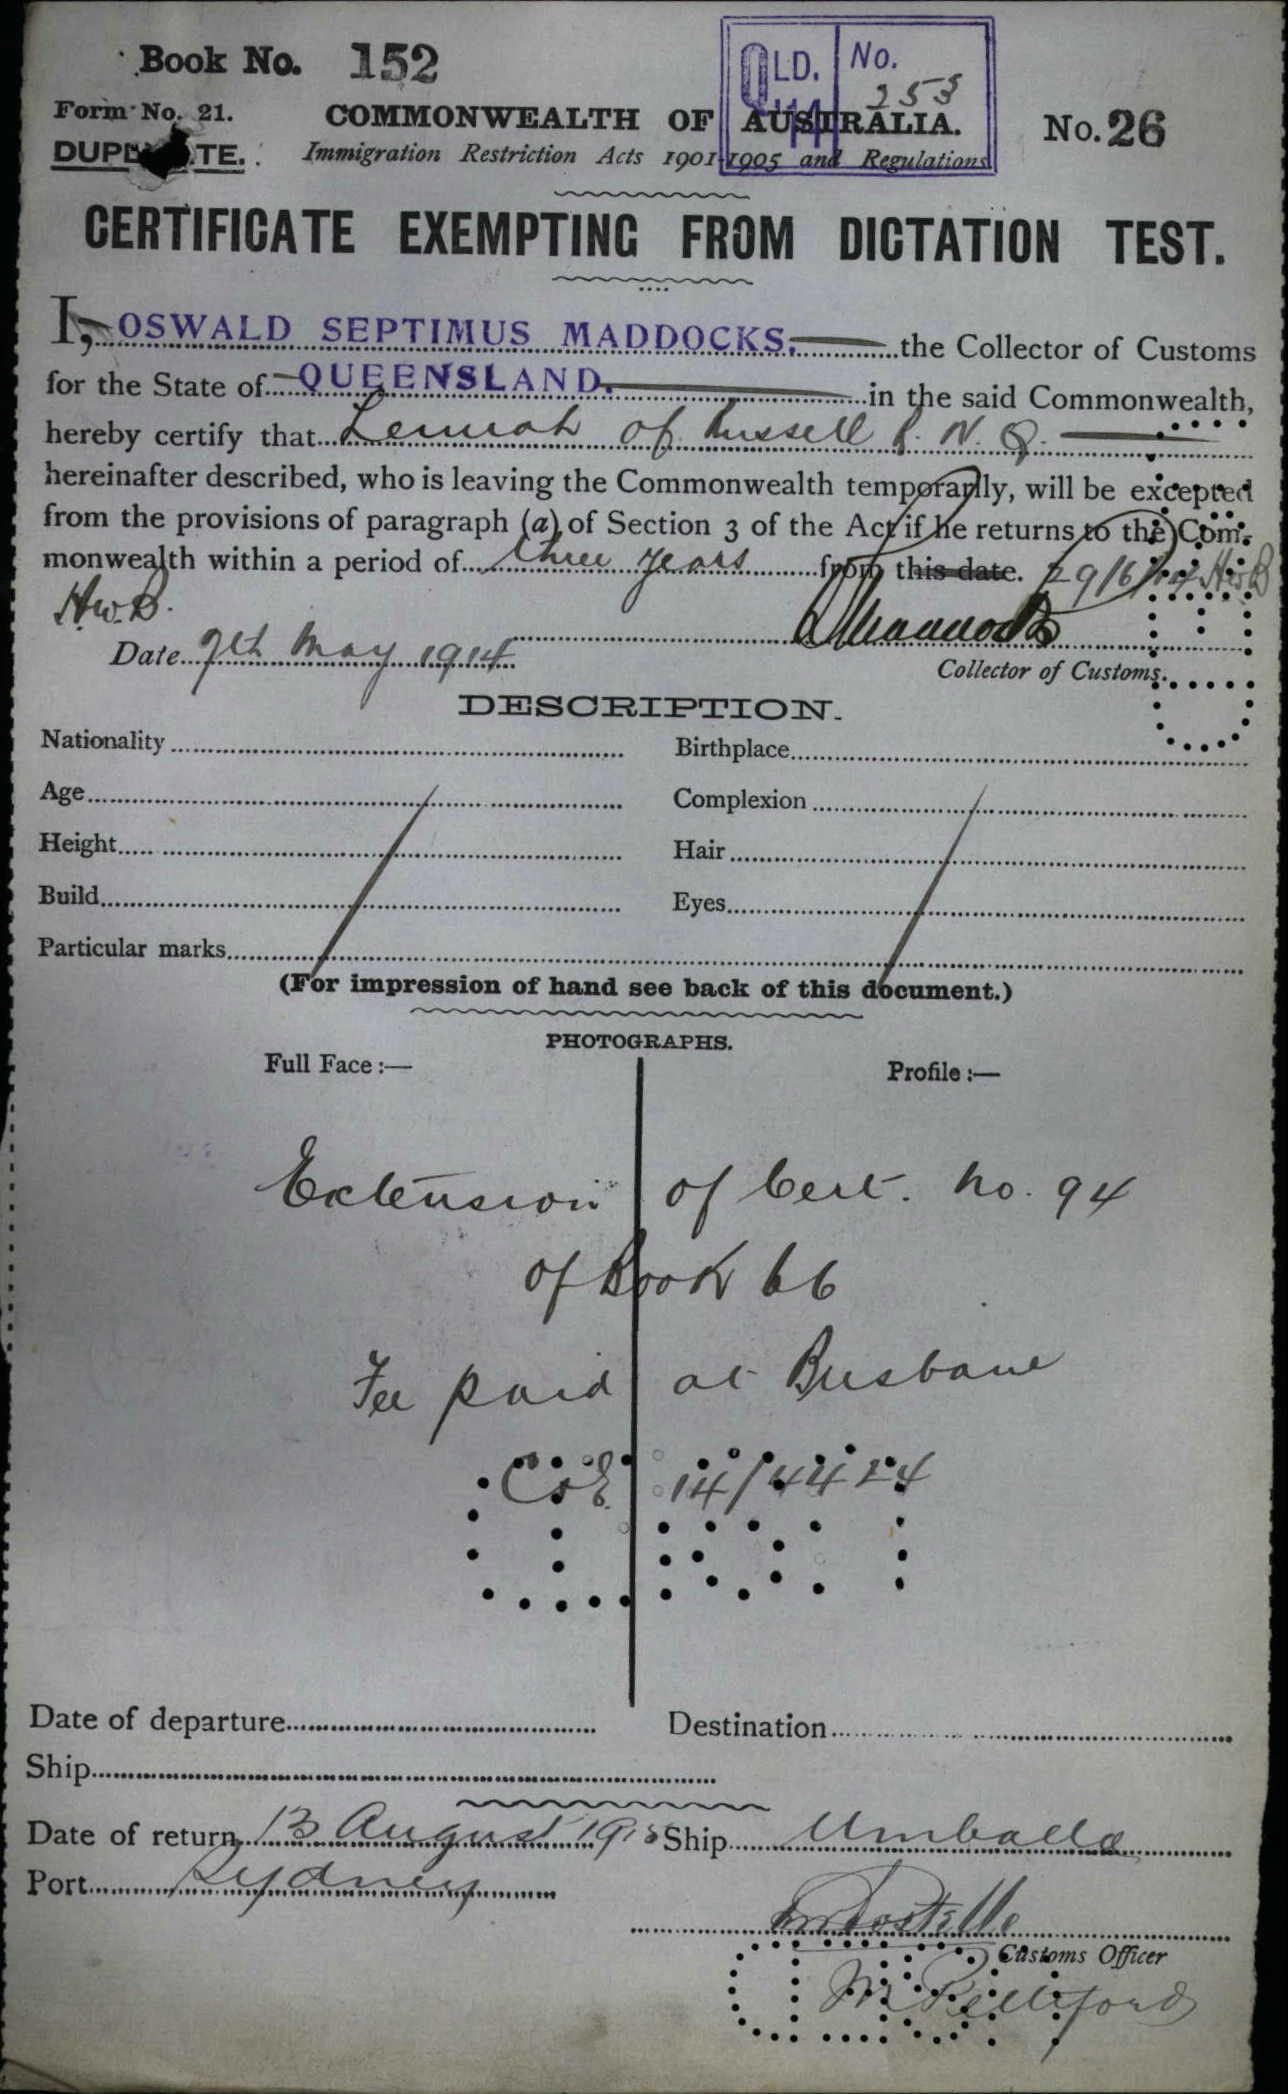 Book No. 152
QLD. No. 253
Form No. 21.
COMMONWEALTH OF AUSTRALIA.
No. 26
DUPLICATE.
Immigration Restriction Acts 1901-1905 and Regulations
CERTIFICATE EXEMPTING FROM DICTATION TEST.
I, OSWALD SEPTIMUS MADDOCKS, the Collector of Customs
for the State of QUEENSLAND. in the said Commonwealth,
hereby certify that Lennah of Russell R. N. Q.
hereinafter described, who is leaving the Commonwealth temporarily, will be excepted
from the provisions of paragraph (a) of Section 3 of the Act if he returns to the Com-
monwealth within a period of three years from this date. 29/6/14 HwB
HwB.
Date 7th May 1914
Collector of Customs.
DESCRIPTION.
Nationality Birthplace
Age Complexion
Height Hair
Build Eyes
Particular marks
(For impression of hand see back of this document.)
PHOTOGRAPHS.
Full Face :— Profile :—
Extension of Cert. No. 94
of Book 66
Fee paid at Brisbane
C&E 14/4424
Date of departure Destination
Ship
Date of return 13 August 1915 Ship Umballa
Port Sydney
Customs Officer